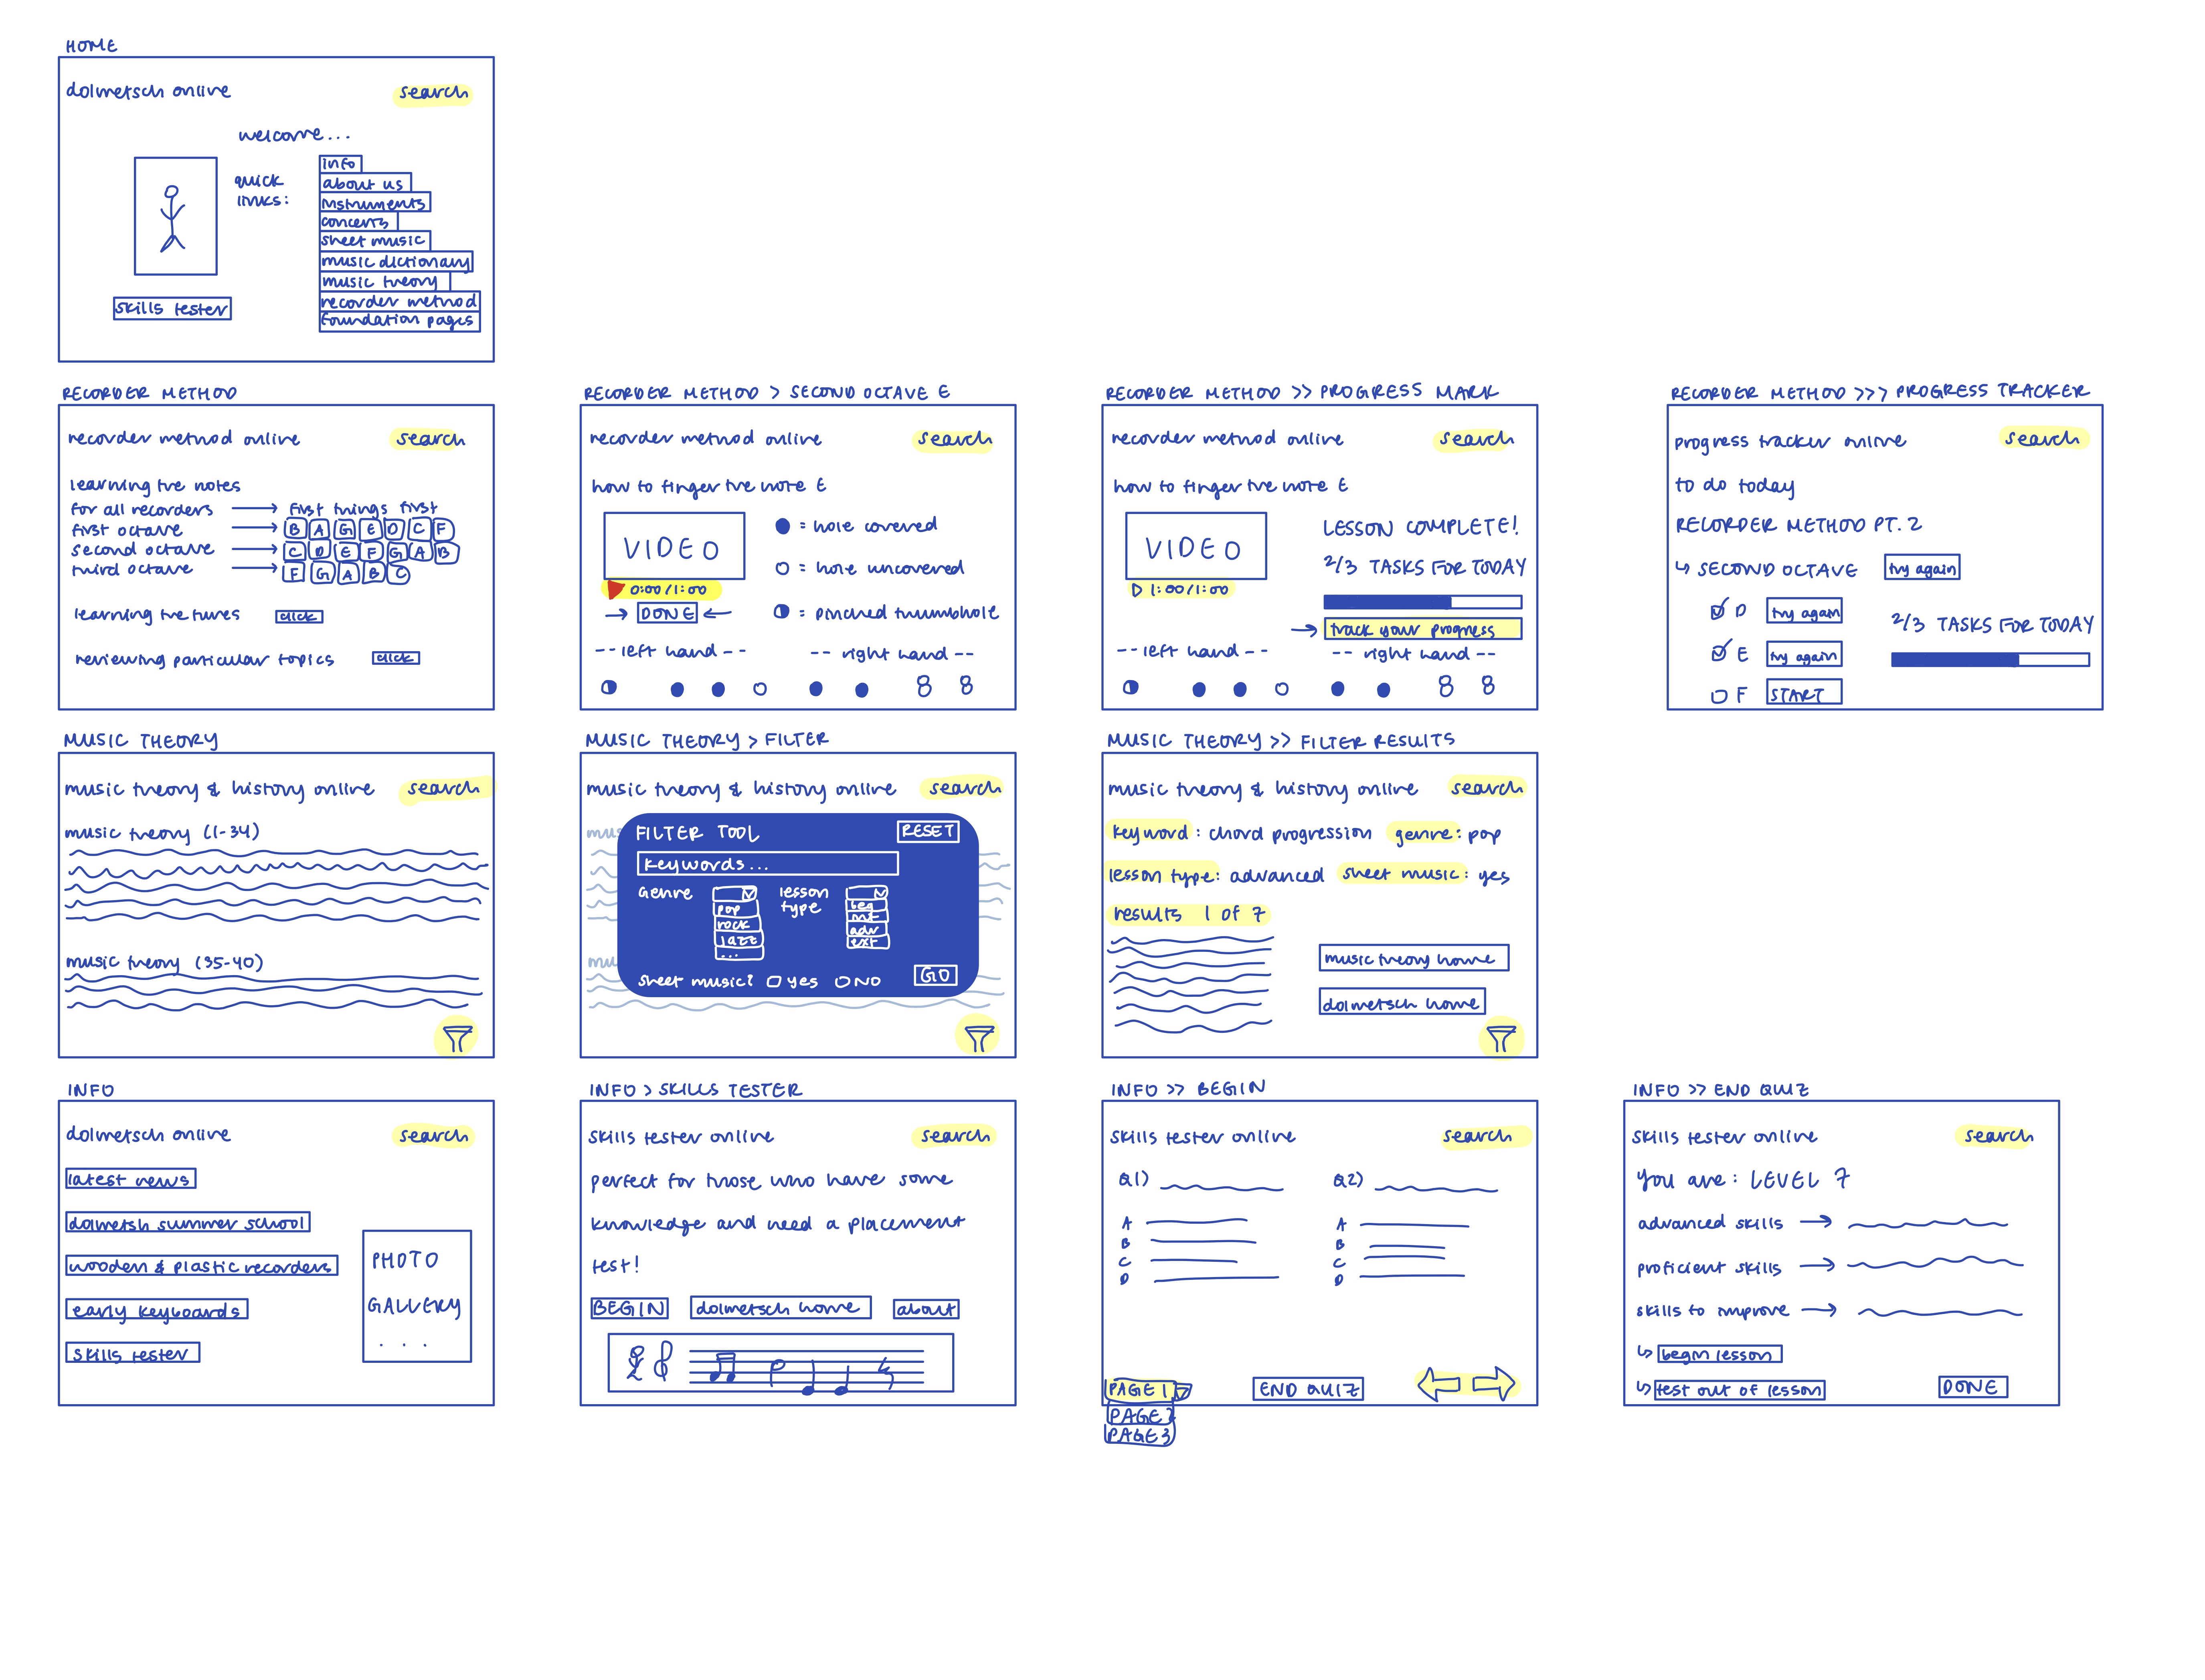 HOME
dolmetsch online
search
welcome...
quick
links:
info
about us
instruments
concerts
sheet music
music dictionary
music theory
recorder method
foundation pages
skills tester
RECORDER METHOD
recorder method online
search
learning the notes
for all recorders → first things first
first octave → B A G E D C F
second octave → C D E F G A B
third octave → F G A B C
learning the tunes click
reviewing particular topics click
RECORDER METHOD > SECOND OCTAVE E
recorder method online
search
how to finger the note E
VIDEO
0:00/1:00
→ DONE ←
= hole covered
= hole uncovered
= pinched thumbhole
-- left hand --
-- right hand --
RECORDER METHOD >> PROGRESS MARK
recorder method online
search
how to finger the note E
VIDEO
1:00/1:00
LESSON COMPLETE!
2/3 TASKS FOR TODAY
→ track your progress
-- left hand --
-- right hand --
RECORDER METHOD >>> PROGRESS TRACKER
progress tracker online
search
to do today
RECORDER METHOD PT. 2
↳ SECOND OCTAVE try again
D try again
E try again
F START
2/3 TASKS FOR TODAY
MUSIC THEORY
music theory & history online
search
music theory (1-34)
music theory (35-40)
MUSIC THEORY > FILTER
music theory & history online
search
mus
mu
FILTER TOOL
RESET
keywords...
Genre
pop
rock
jazz
...
lesson
type
beg
int
adv
ext
sheet music? yes NO
GO
MUSIC THEORY >> FILTER RESULTS
music theory & history online
search
keyword: chord progression genre: pop
lesson type: advanced sheet music: yes
results 1 of 7
music theory home
dolmetsch home
INFO
dolmetsch online
search
latest news
dolmetsh summer school
wooden & plastic recorders
early keyboards
skills tester
PHOTO
GALLERY
...
INFO > SKILLS TESTER
skills tester online
search
perfect for those who have some
knowledge and need a placement
test!
BEGIN
dolmetsch home
about
INFO >> BEGIN
skills tester online
search
Q1)
A
B
C
D
Q2)
A
B
C
D
PAGE 1
PAGE 2
PAGE 3
END QUIZ
INFO >> END QUIZ
skills tester online
search
you are: LEVEL 7
advanced skills →
proficient skills →
skills to improve →
↳ begin lesson
↳ test out of lesson
DONE